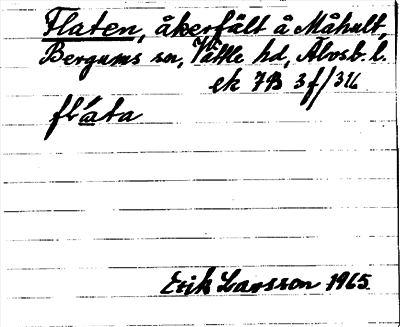 Flaten, åkerfält å Måhult,
Bergums sn, Vättle hd, Älvsb. l.
ek 7B 3f/316
flá̱ta
Erik Larsson 1965